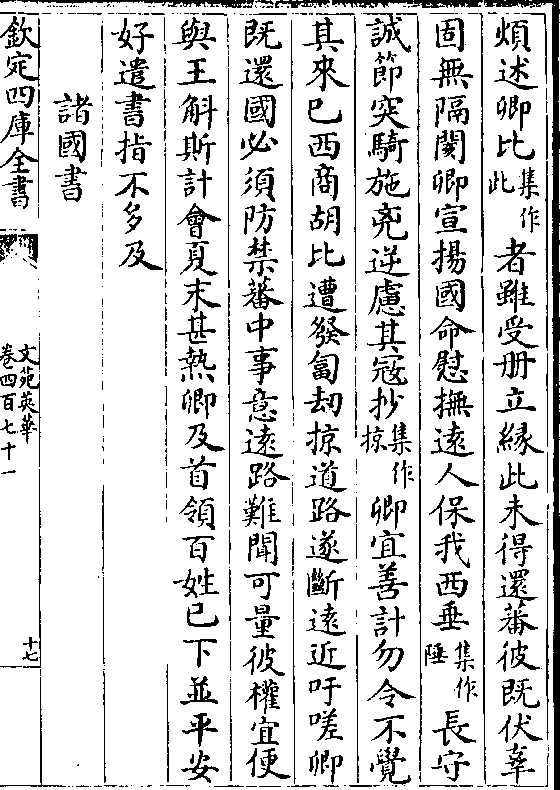 煩述卿比集作此者雖受册立緣此未得還蕃彼既伏辜
固無隔閡卿宣揚國命慰撫遠人保我西垂集作陲長守
誠節突騎施兇逆慮其冦抄集作掠卿宜善計勿令不覺
其來巳西商胡比遭發匐刧掠道路遂斷遠近吁嗟卿
既還國必須防禁蕃中事意遠路難聞可量彼權宜便
與王斛斯計會夏末甚熱卿及首領百姓已下並平安
好遣書指不多及
諸國書
欽定四庫全書
文苑英華
卷四百七十一
十七